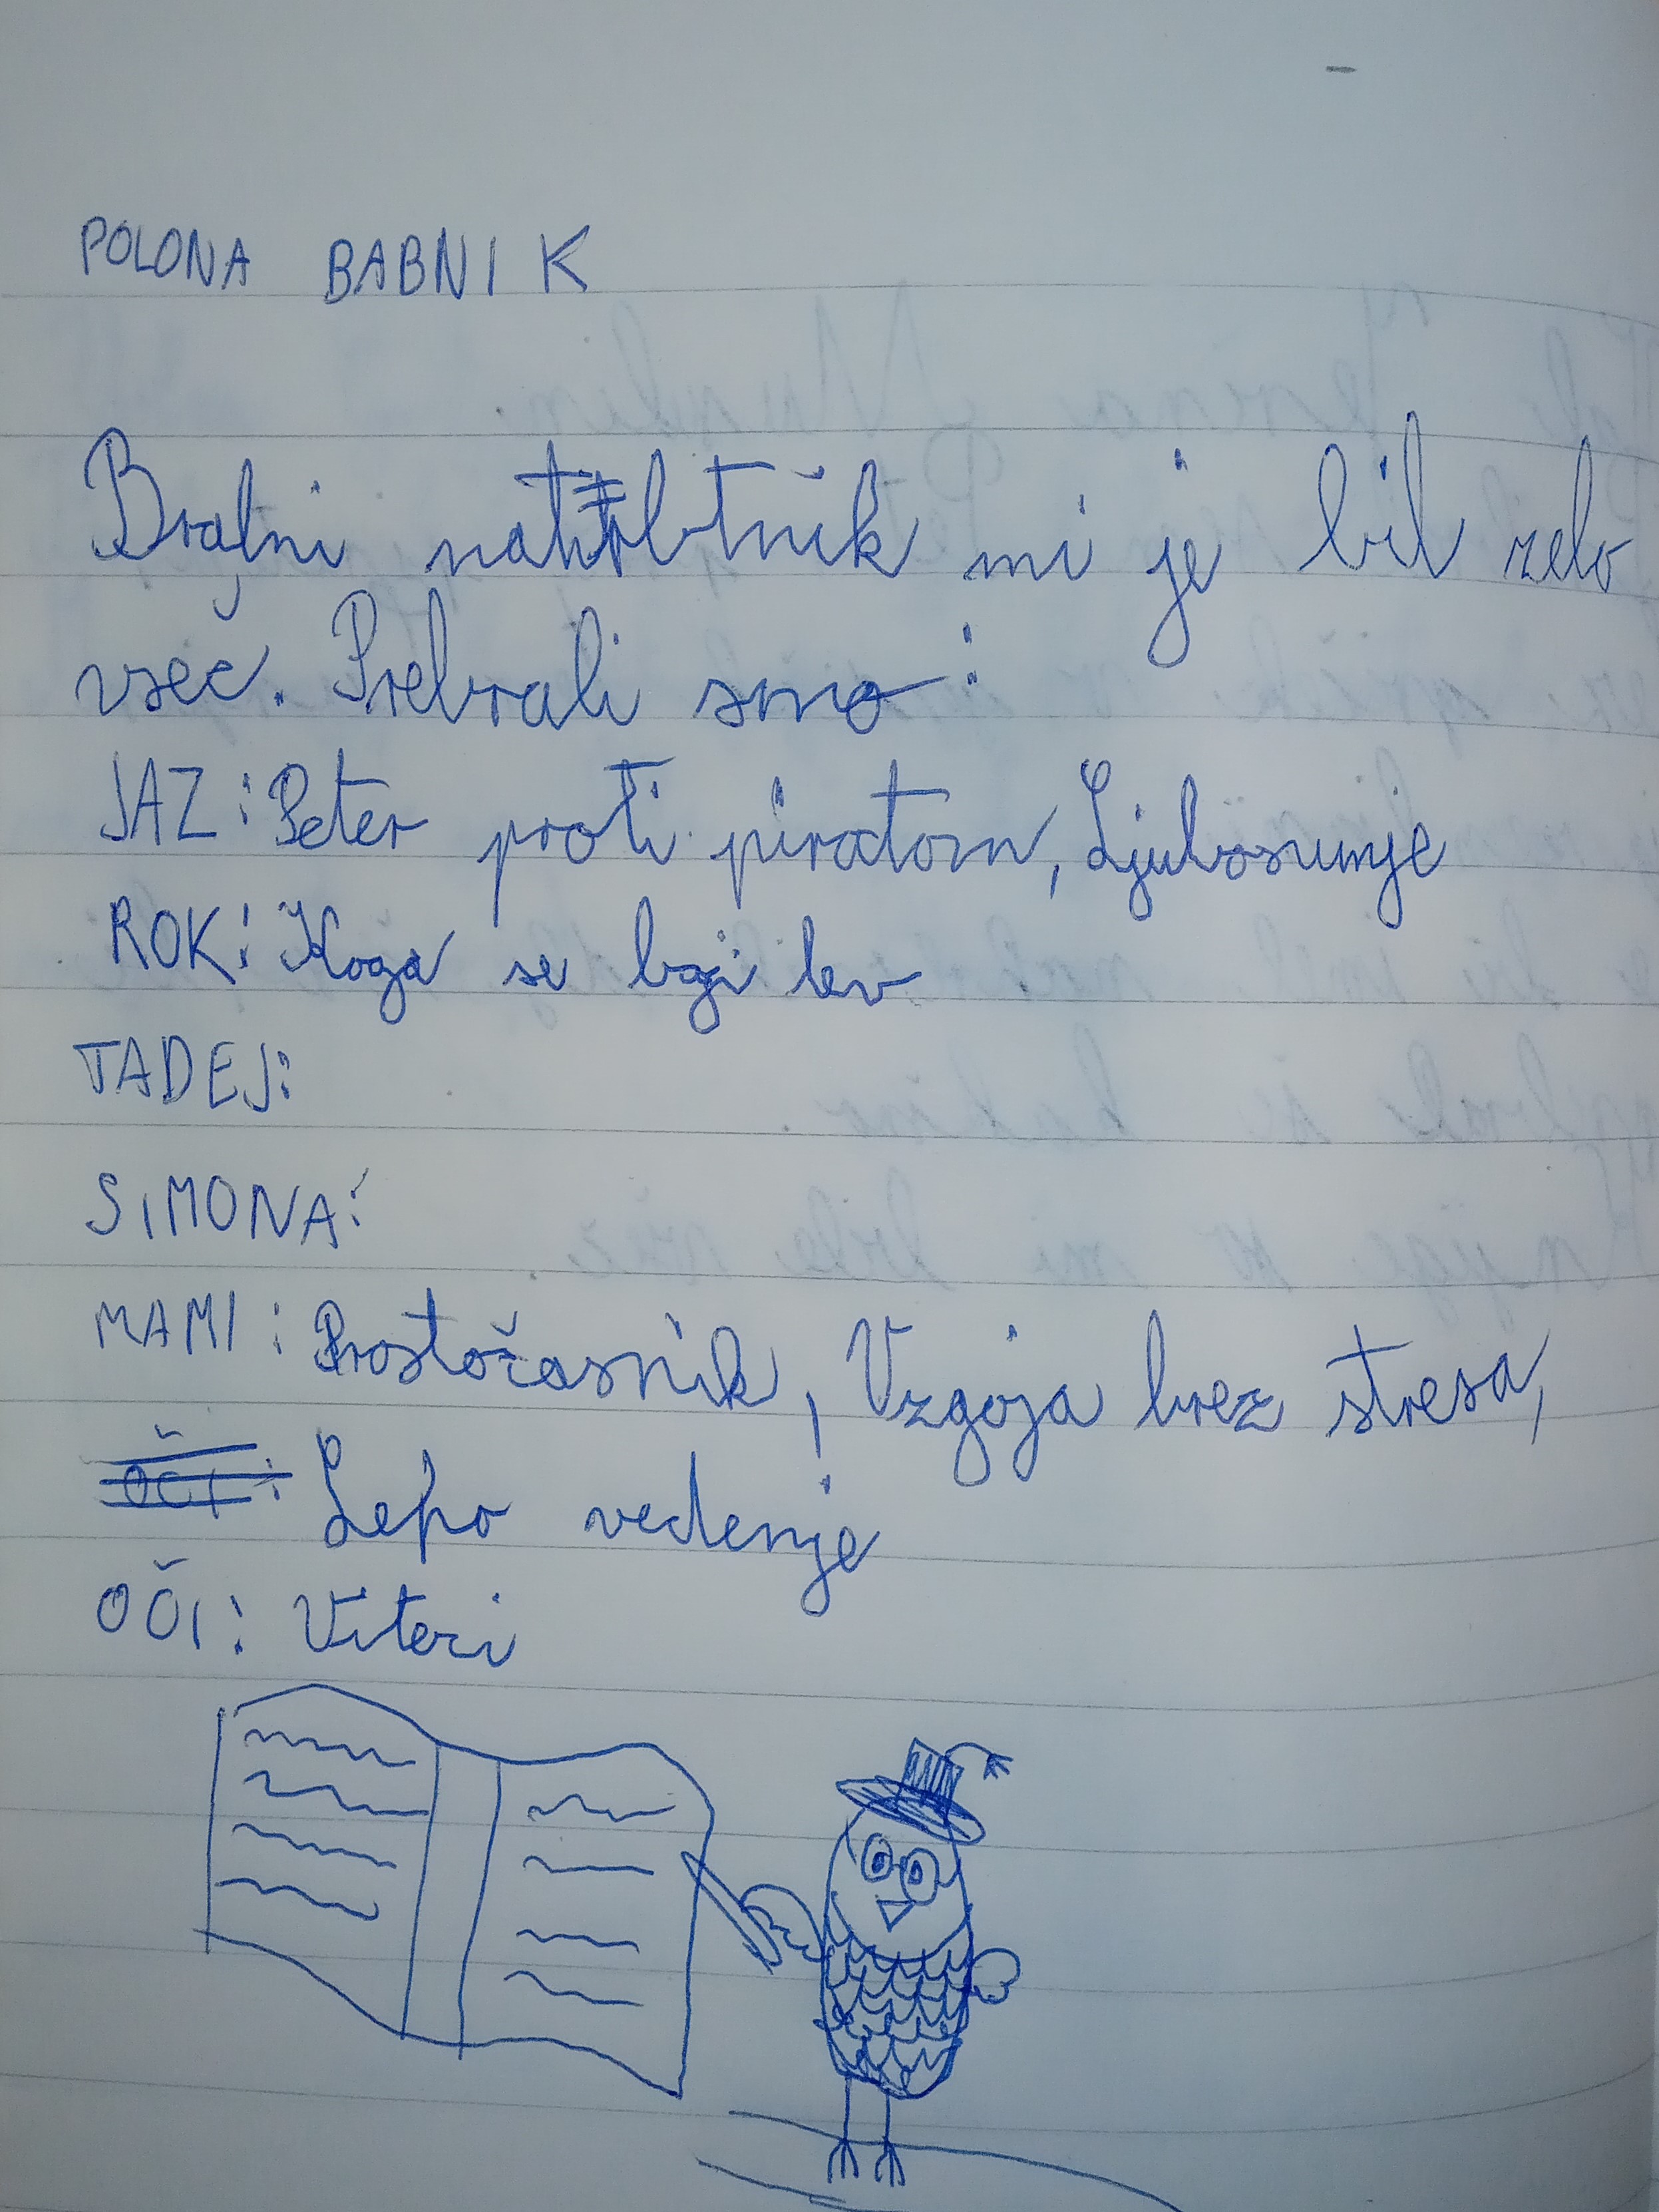 POLONA BABNIK
Bralni nahrbtnik mi je bil zelo
vsec. Prebrali smo:
JAZ: Peter proti piratom, Ljubosumje
ROK: Koga se boji lev
TADEJ:
SIMONA:
MAMI: Prostočasnik, Vzgoja brez stresa,
OČI: Lepo vedenje
OČI: Vitezi